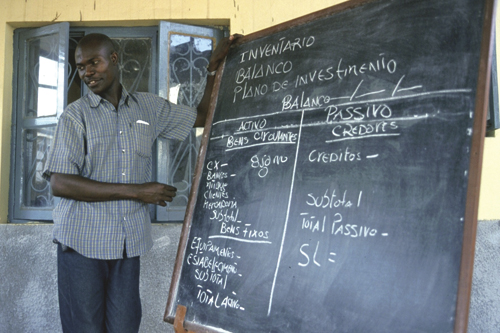 INVENTÁRIO
BALANCO
PLANO DE INVESTIMENTO
BALANCO __/__/__
ACTIVO
BENS CIRCULANTES
CX -
BANCOS -
Clientes
MERCADORIA
Subtotal
BENS FIXOS
EQUIPAMENTOS -
ESTABELECIMENTO
SUBTOTAL
TOTAL ACTIVO -
PASSIVO
CREDORES
CREDITOS -
Subtotal
TOTAL PASSIVO -
SL =